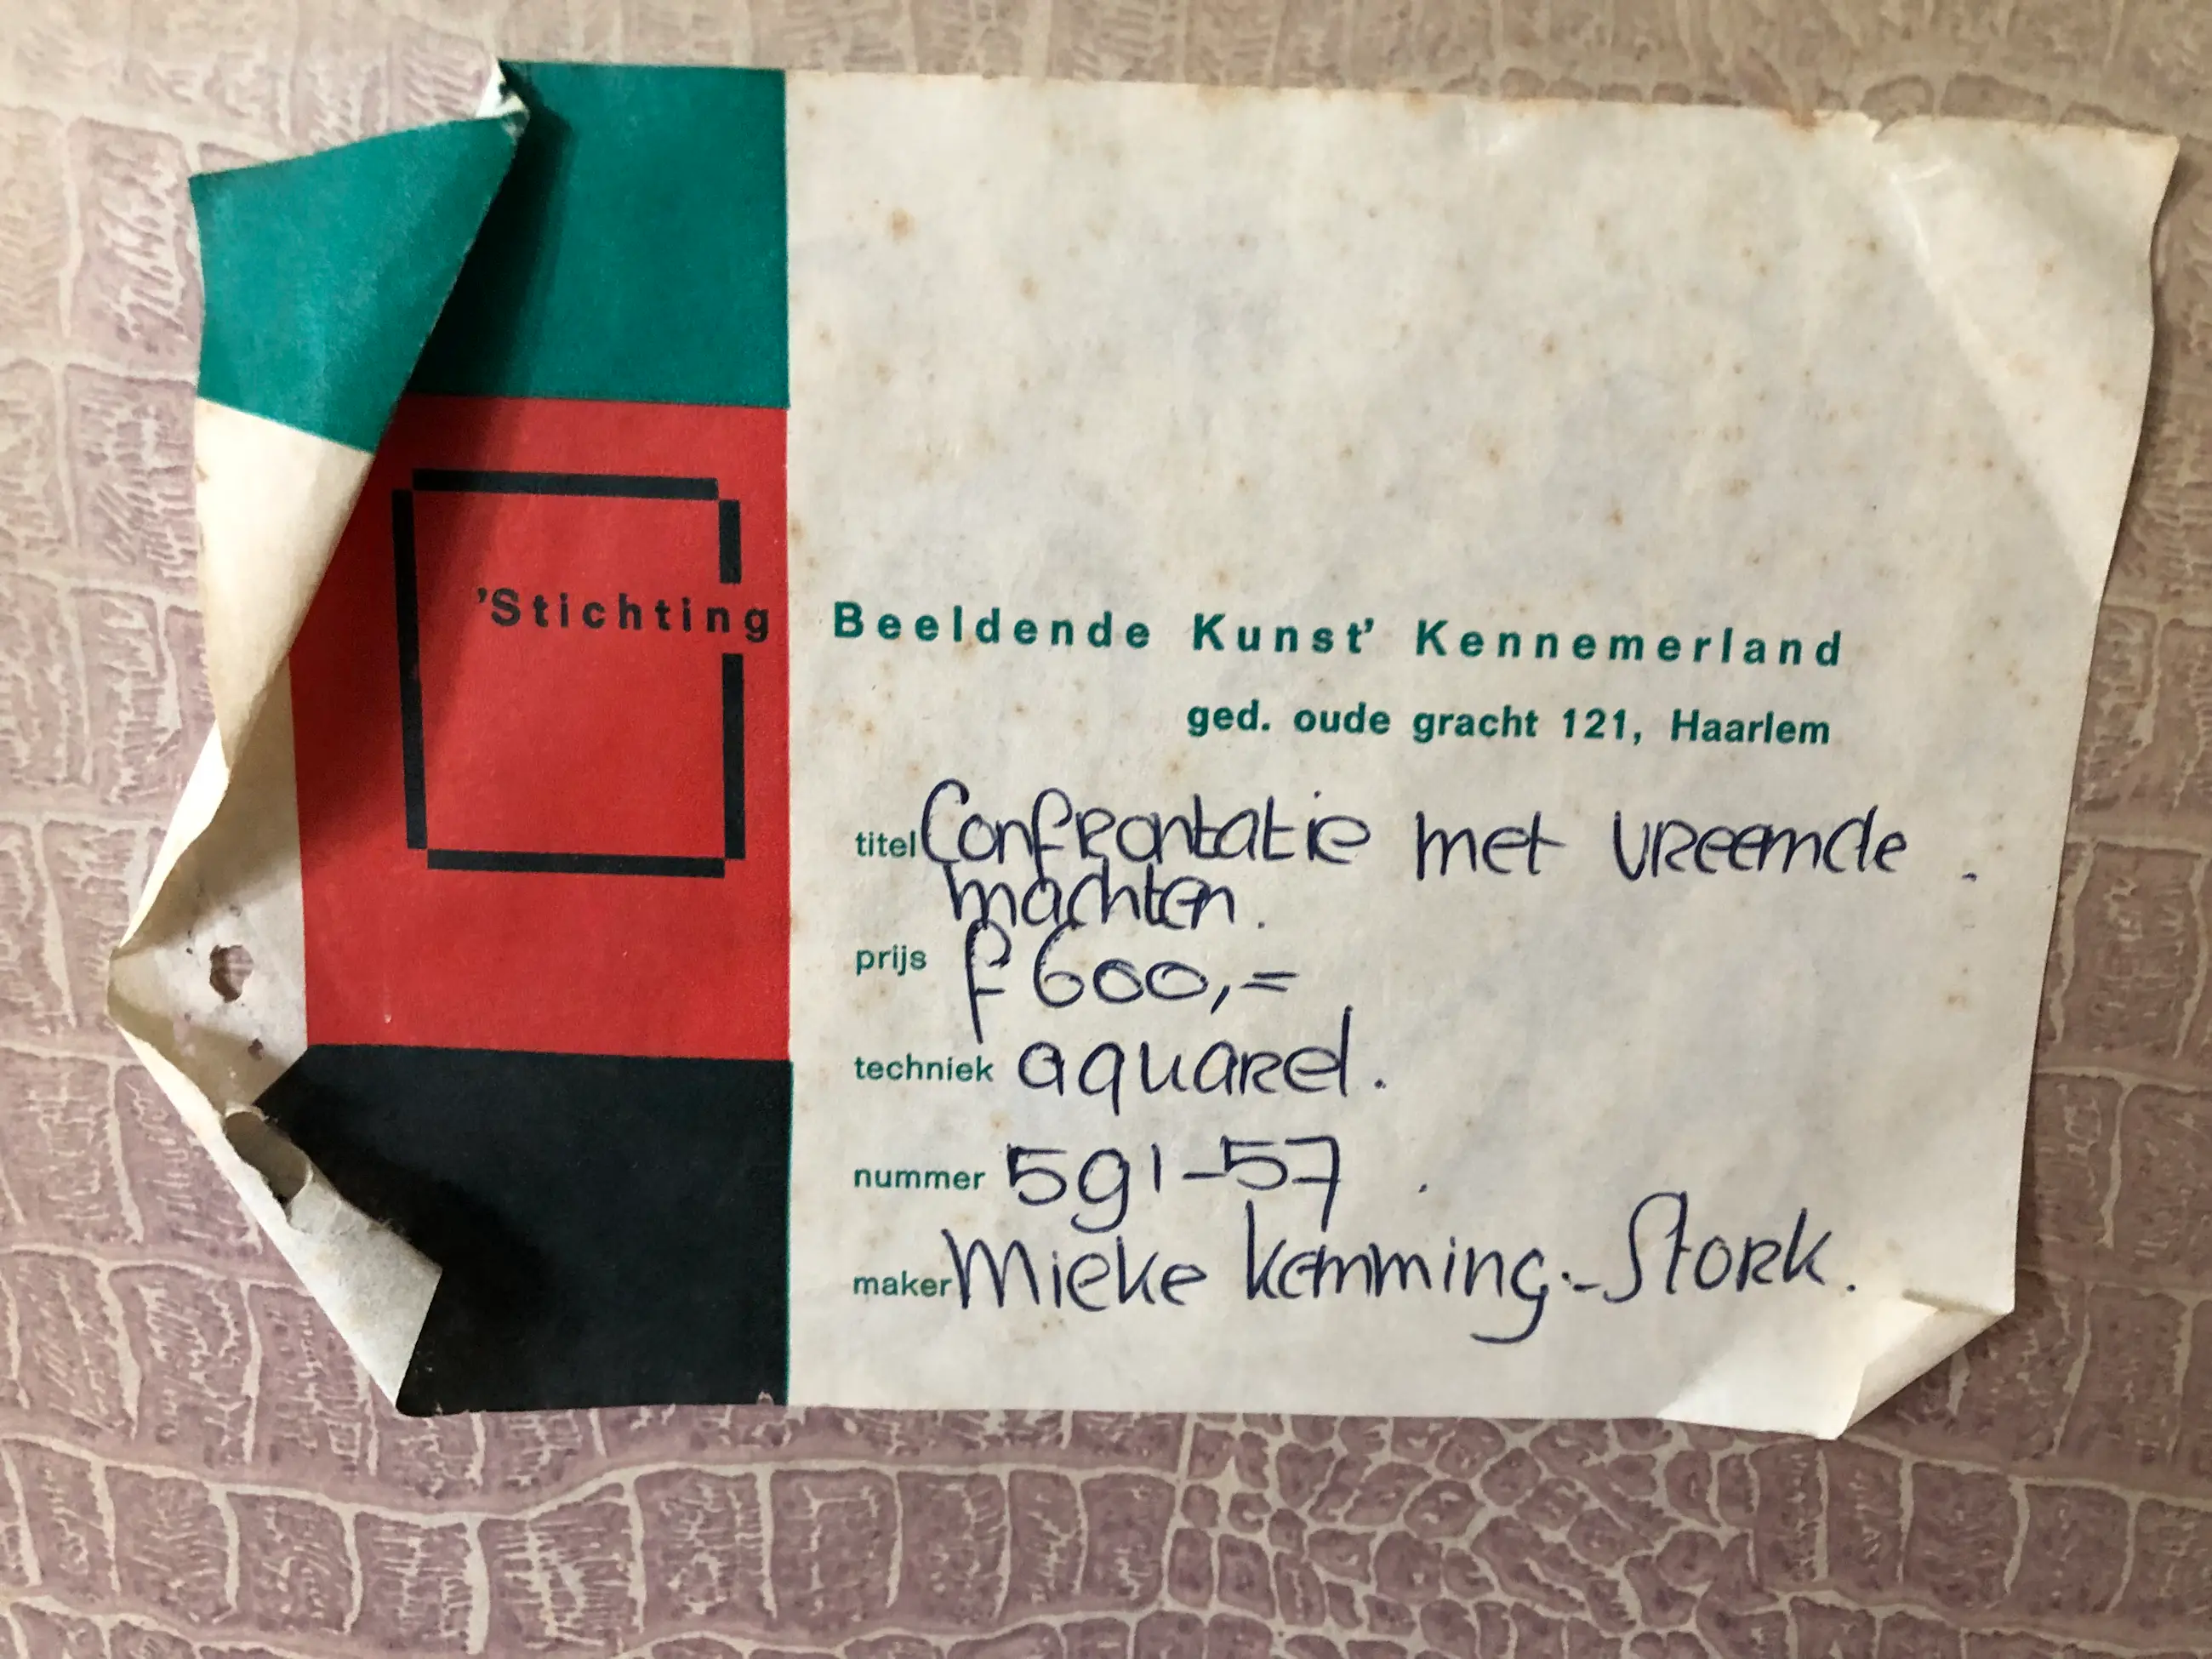 'Stichting Beeldende Kunst' Kennemerland
ged. oude gracht 121, Haarlem
titel Confrontatie met vreemde
machten.
prijs f 600,=
techniek aquarel.
nummer 591-57
maker Mieke Kemming-Stork.